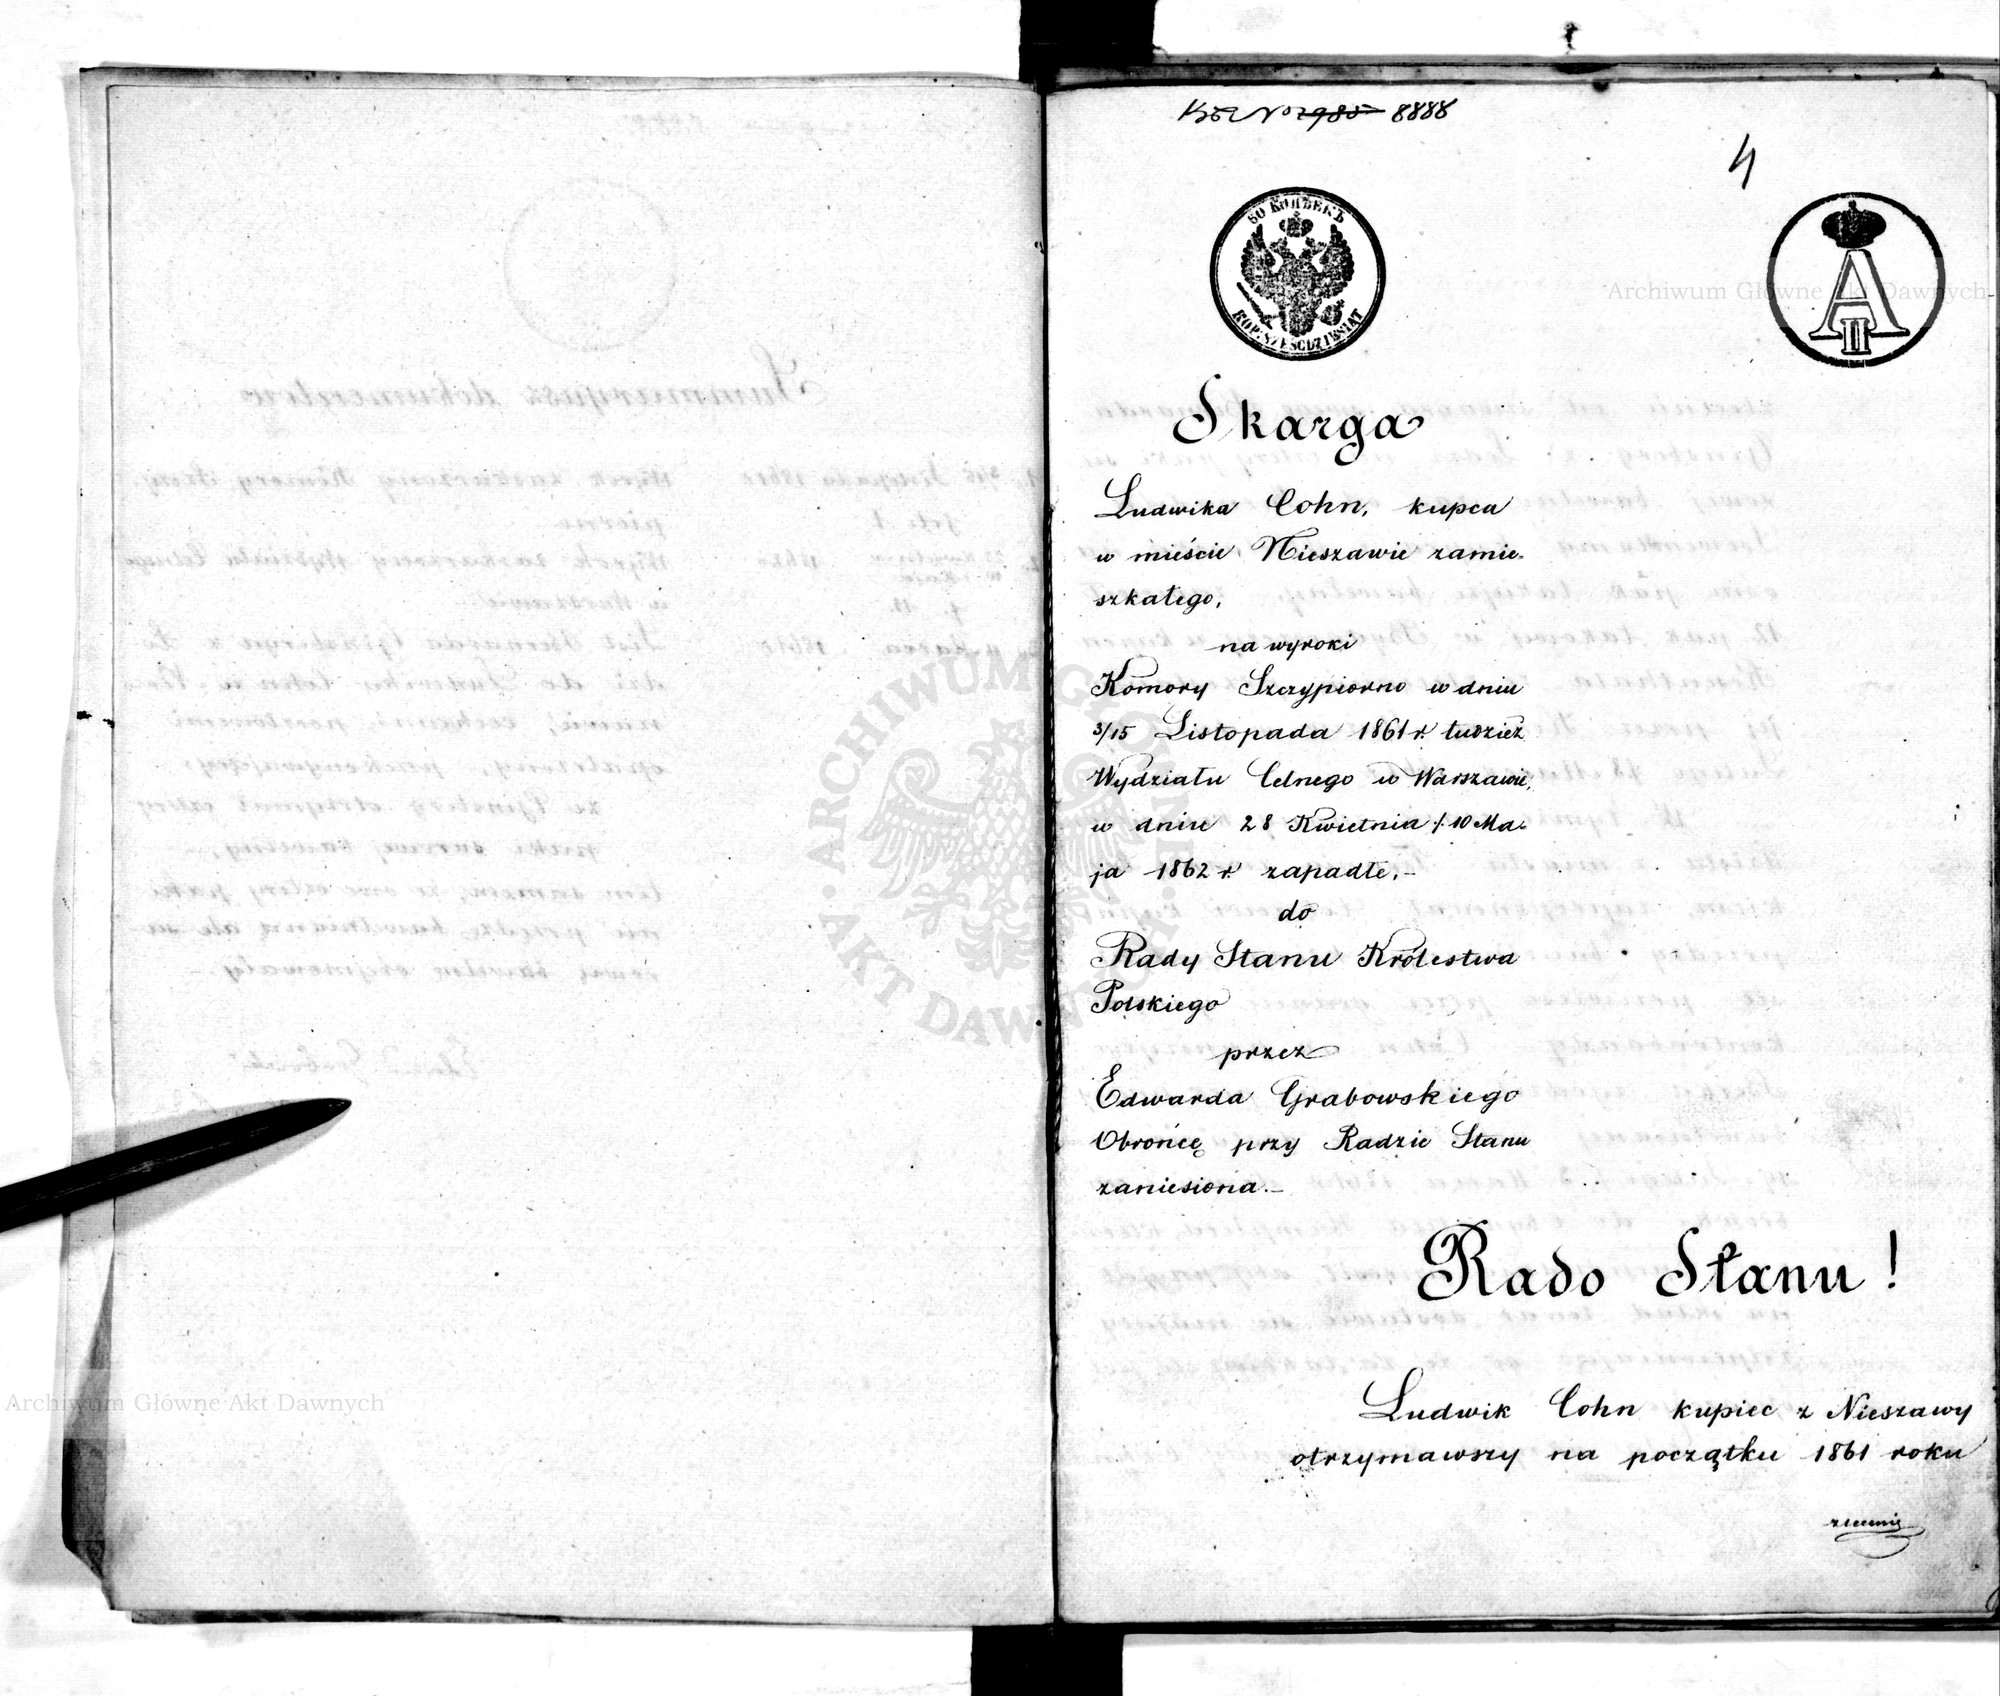 No 2985 8888
4
60 КОПѢЕКЪ
KOP: SZEŚĆDZIESIĄT
A II
Skarga
Ludwika Cohn, kupca
w mieście Nieszawie zamie-
szkałego,
na wyroki
Komory Szczypiorno w dniu
3/15 Listopada 1861 r. tudzież
Wydziału Celnego w Warszawie,
w dniu 28 Kwietnia /: 10 Ma-
ja 1862 r. zapadłe, -
do
Rady Stanu Królestwa
Polskiego
przez
Edwarda Grabowskiego
Obrońcę przy Radzie Stanu
zaniesiona. -
Rado Stanu !
Ludwik Cohn kupiec z Nieszawy
otrzymawszy na początku 1861 roku
zlecenie
Archiwum Główne Akt Dawnych
Archiwum Główne Akt Dawnych
ARCHIWUM GŁÓWNE AKT DAWNYCH